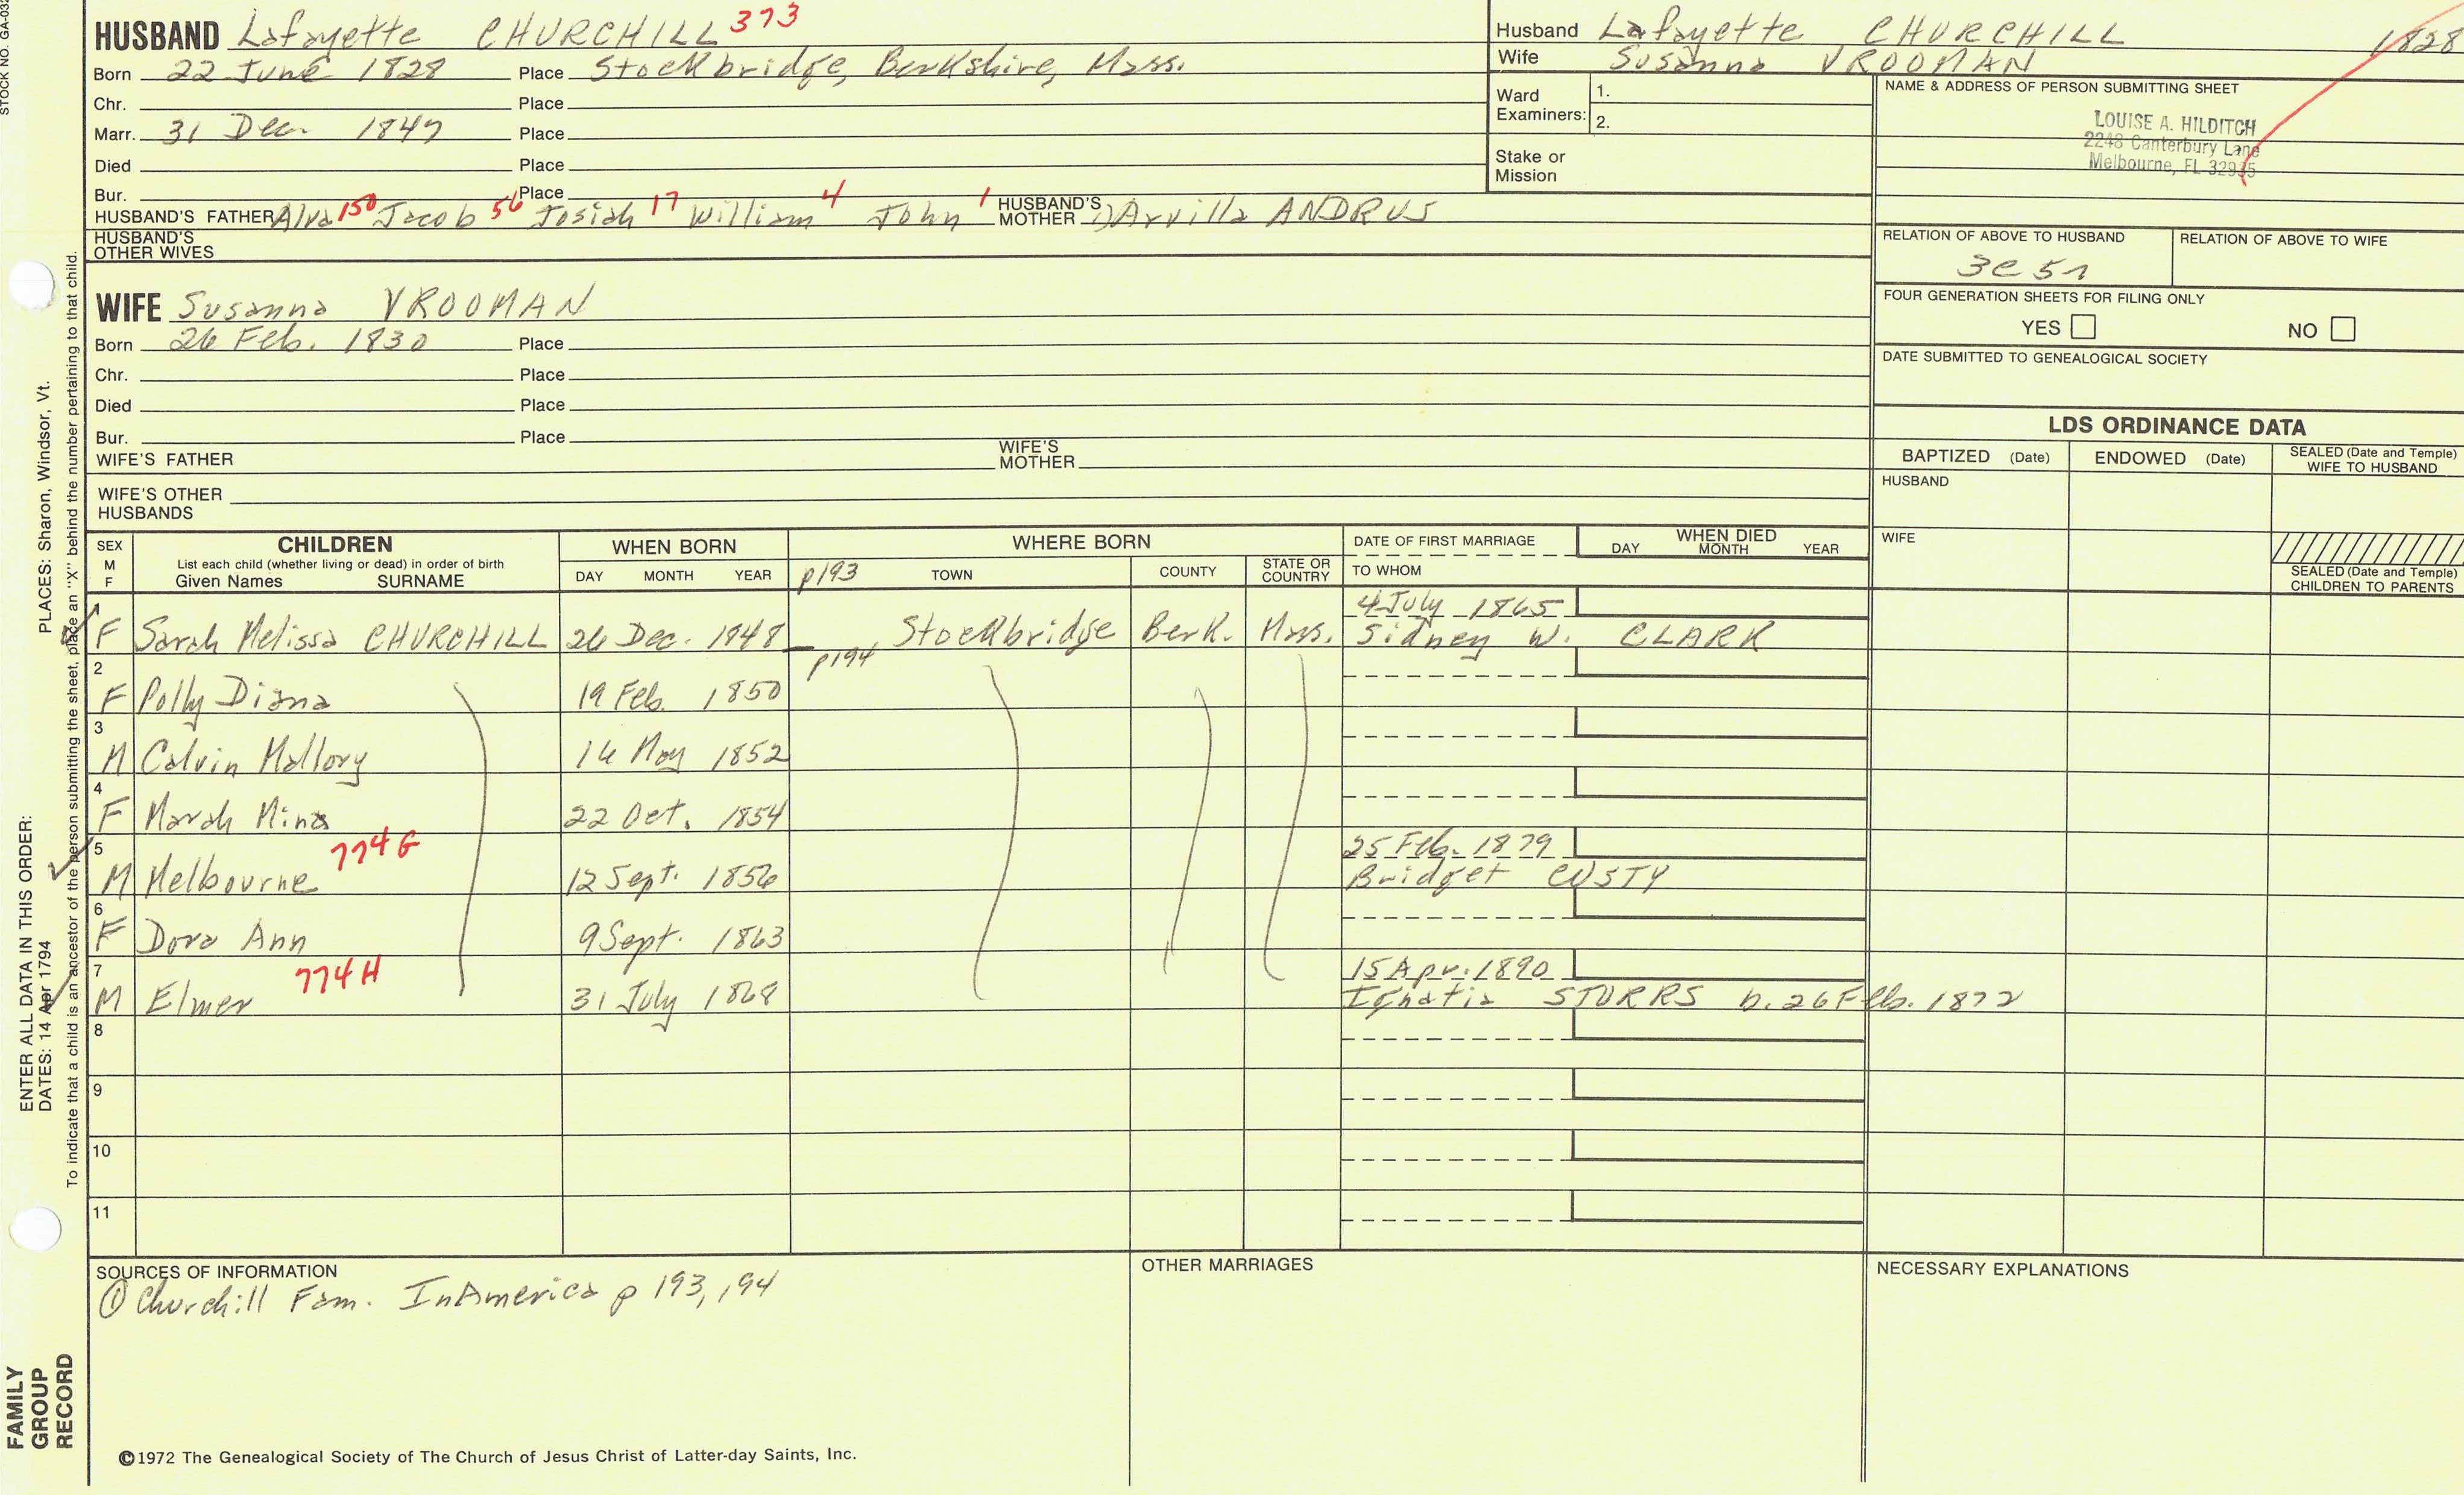 STOCK NO. GA-032
HUSBAND Lafayette CHURCHILL 373
Born 22 June 1828 Place Stockbridge, Berkshire, Mass.
Chr. Place
Marr. 31 Dec. 1847 Place
Died Place
Bur. Place
HUSBAND'S FATHER Alva 150 Jacob 56 Josiah 17 William 4 John 1 HUSBAND'S MOTHER Arvilla ANDRUS
HUSBAND'S OTHER WIVES
WIFE Susanna VROOMAN
Born 26 Feb. 1830 Place
Chr. Place
Died Place
Bur. Place
WIFE'S FATHER WIFE'S MOTHER
WIFE'S OTHER HUSBANDS
Husband Lafayette CHURCHILL 1828
Wife Susanna VROOMAN
Ward Examiners: 1.
2.
Stake or Mission
NAME & ADDRESS OF PERSON SUBMITTING SHEET
LOUISE A. HILDITCH
2248 Canterbury Lane
Melbourne, FL 32935
RELATION OF ABOVE TO HUSBAND RELATION OF ABOVE TO WIFE
3c 5r
FOUR GENERATION SHEETS FOR FILING ONLY
YES NO
DATE SUBMITTED TO GENEALOGICAL SOCIETY
LDS ORDINANCE DATA
BAPTIZED (Date) ENDOWED (Date) SEALED (Date and Temple) WIFE TO HUSBAND
HUSBAND
WIFE
SEALED (Date and Temple) CHILDREN TO PARENTS
SEX M F
CHILDREN
List each child (whether living or dead) in order of birth
Given Names SURNAME
WHEN BORN
DAY MONTH YEAR
WHERE BORN
p193 TOWN COUNTY STATE OR COUNTRY
DATE OF FIRST MARRIAGE
TO WHOM
WHEN DIED
DAY MONTH YEAR
4 July 1865
F Sarah Melissa CHURCHILL 26 Dec. 1848 Stockbridge Berk. Mass. Sidney W. CLARK
2 p194
F Polly Diana 19 Feb. 1850
3
M Calvin Mallory 16 May 1852
4
F Marah Mina 22 Oct. 1854
5 774G 25 Feb. 1879
M Melbourne 12 Sept. 1856 Bridget CUSTY
6
F Dora Ann 9 Sept. 1863
7 774H 15 Apr. 1890
M Elmer 31 July 1868 Ignatia STORRS b. 26 Feb. 1872
8
9
10
11
SOURCES OF INFORMATION
① Churchill Fam. In America p 193, 194
OTHER MARRIAGES
NECESSARY EXPLANATIONS
©1972 The Genealogical Society of The Church of Jesus Christ of Latter-day Saints, Inc.
FAMILY GROUP RECORD
ENTER ALL DATA IN THIS ORDER:
DATES: 14 Apr 1794 PLACES: Sharon, Windsor, Vt.
To indicate that a child is an ancestor of the person submitting the sheet, place an "X" behind the number pertaining to that child.